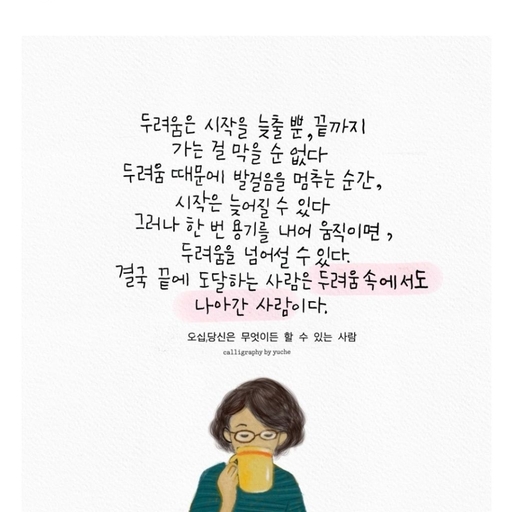 두려움은 시작을 늦출 뿐,끝까지
가는 걸 막을 순 없다
두려움 때문에 발걸음을 멈추는 순간,
시작은 늦어질 수 있다
그러나 한 번 용기를 내어 움직이면,
두려움을 넘어설 수 있다.
결국 끝에 도달하는 사람은 두려움 속에서도
나아간 사람이다.
오십,당신은 무엇이든 할 수 있는 사람
calligraphy by yuche